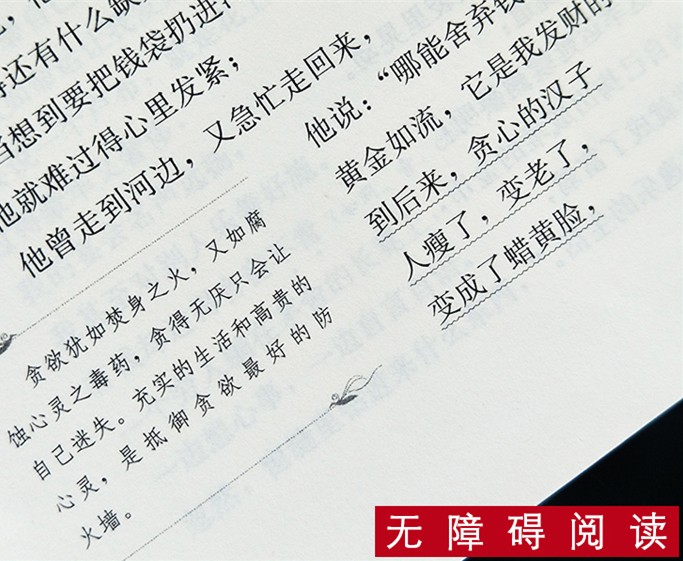 还有什么缺
想到要把钱袋扔进
他就难过得心里发紧；
他曾走到河边，又急忙走回来，
贪欲犹如焚身之火，又如腐
蚀心灵之毒药，贪得无厌只会让
自己迷失。充实的生活和高贵的
心灵，是抵御贪欲最好的防
火墙。
他说：“哪能舍弃钱
黄金如流，它是我发财的
到后来，贪心的汉子
人瘦了，变老了，
变成了蜡黄脸，
无障碍阅读